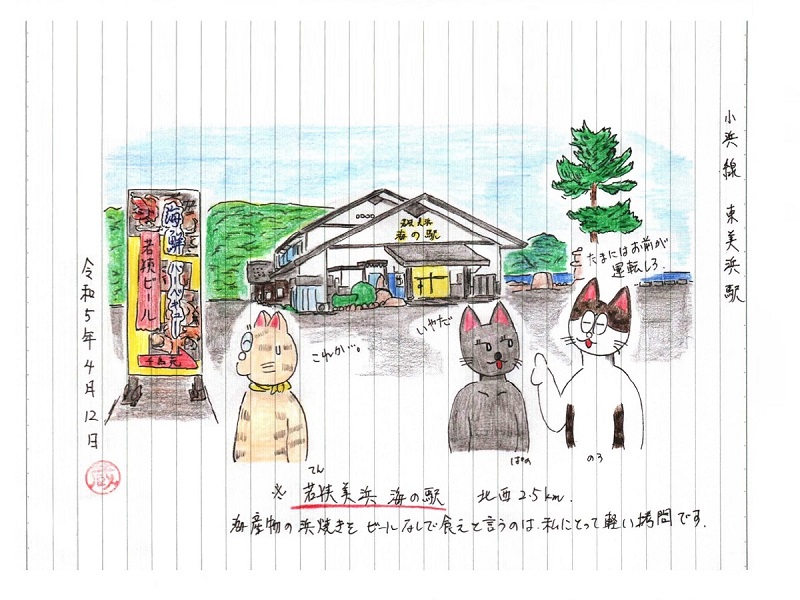 小浜線 東美浜駅
若狭美浜
海の駅
海鮮
バーベキュー
若狭ビール
たまにはお前が
運転しろ。
いやだ
これかい。
てん
ぱめ
のろ
令和5年4月12日
蔵
※ 若狭美浜 海の駅 北西2.5km.
海産物の浜焼きを ビールなしで食えと言うのは、私にとって軽い拷問です。